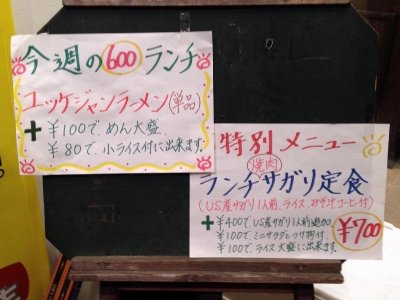 今週の600ランチ
ユッケジャンラーメン(単品)
+ ¥100で、めん大盛
¥80で、小ライス付に出来ます。
特別メニュー
焼肉
ランチサガリ定食
(US産サガリ1人前、ライス、みそ汁、コーヒー付)
+ ¥400で、US産サガリ1人前追加
¥100で、ミニサラダとつけ物付
¥100で、ライス大盛に出来ます。
¥700